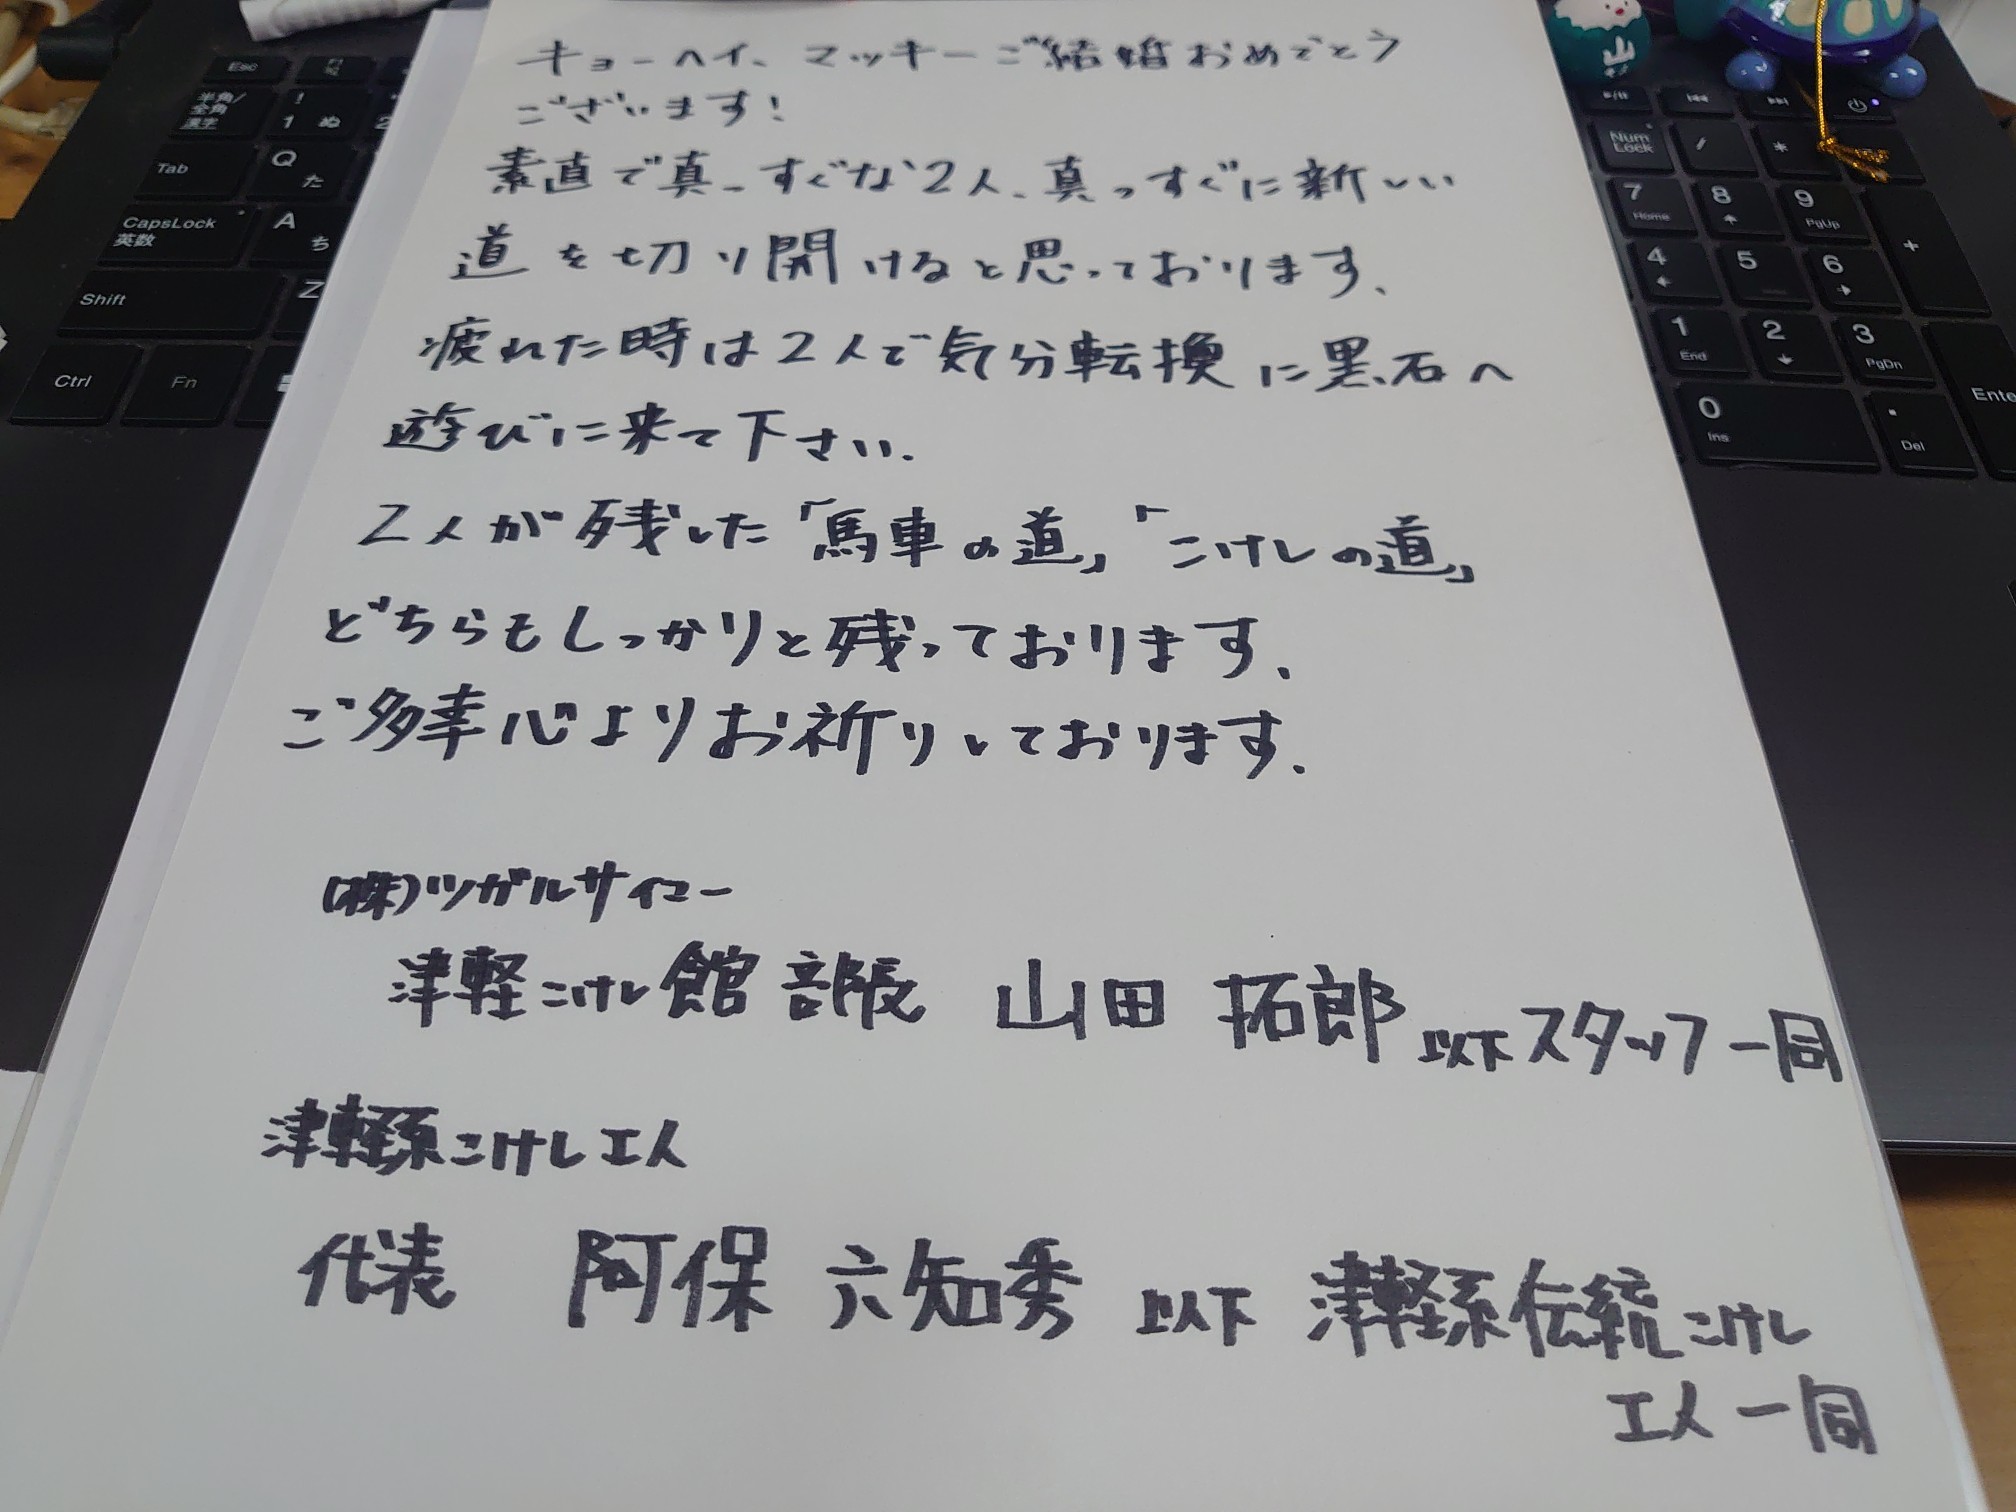 キョーヘイ、マッキーご結婚おめでとう
ございます!
素直で真っすぐな2人、真っすぐに新しい
道を切り開けると思っております、
疲れた時は2人で気分転換に黒石へ
遊びに来て下さい.
2人が残した「馬車の道」「こけしの道」
どちらもしっかりと残っております.
ご多幸心よりお祈りしております.
(株)ツガルサイコー
津軽こけし館 部長 山田 拓郎 以下スタッフ一同
津軽系こけし工人
代表 阿保 六知秀 以下 津軽系伝統こけし
工人一同
Esc
半角/
全角
漢字
! 1 ぬ
2
Tab
Q た
CapsLock
英数
A ち
Shift
Z
Ctrl
Fn
山
Num
Lock
/
*
7 Home
8
9 PgUp
+
4
5
6
1 End
2
3 PgDn
0 Ins
. Del
Ente